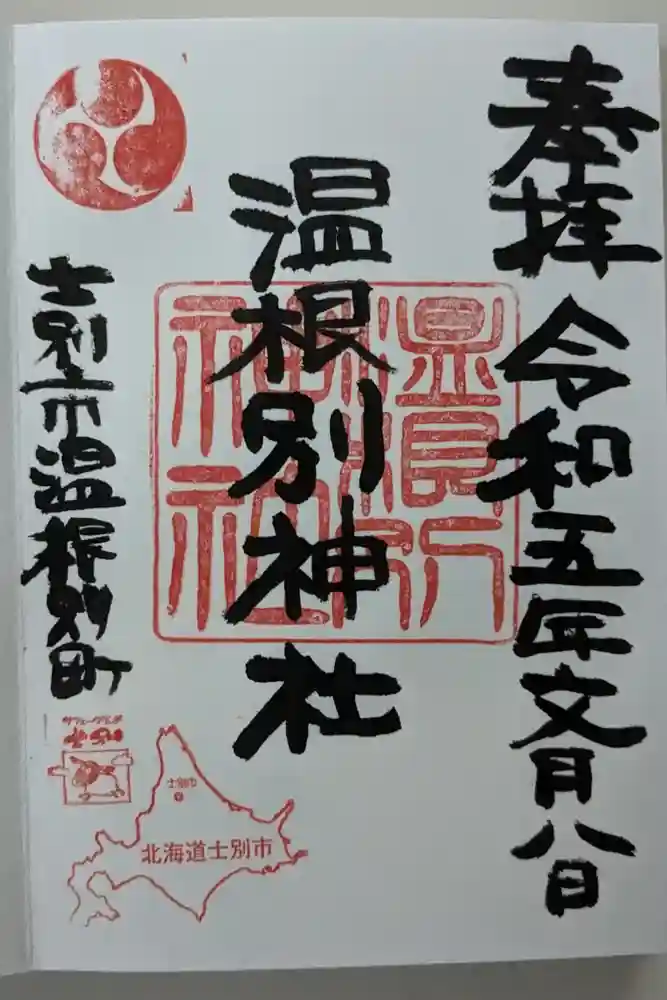 奉拝 令和五年文月八日
温根別神社
温根別神社
士別市温根別町
士別市
北海道士別市